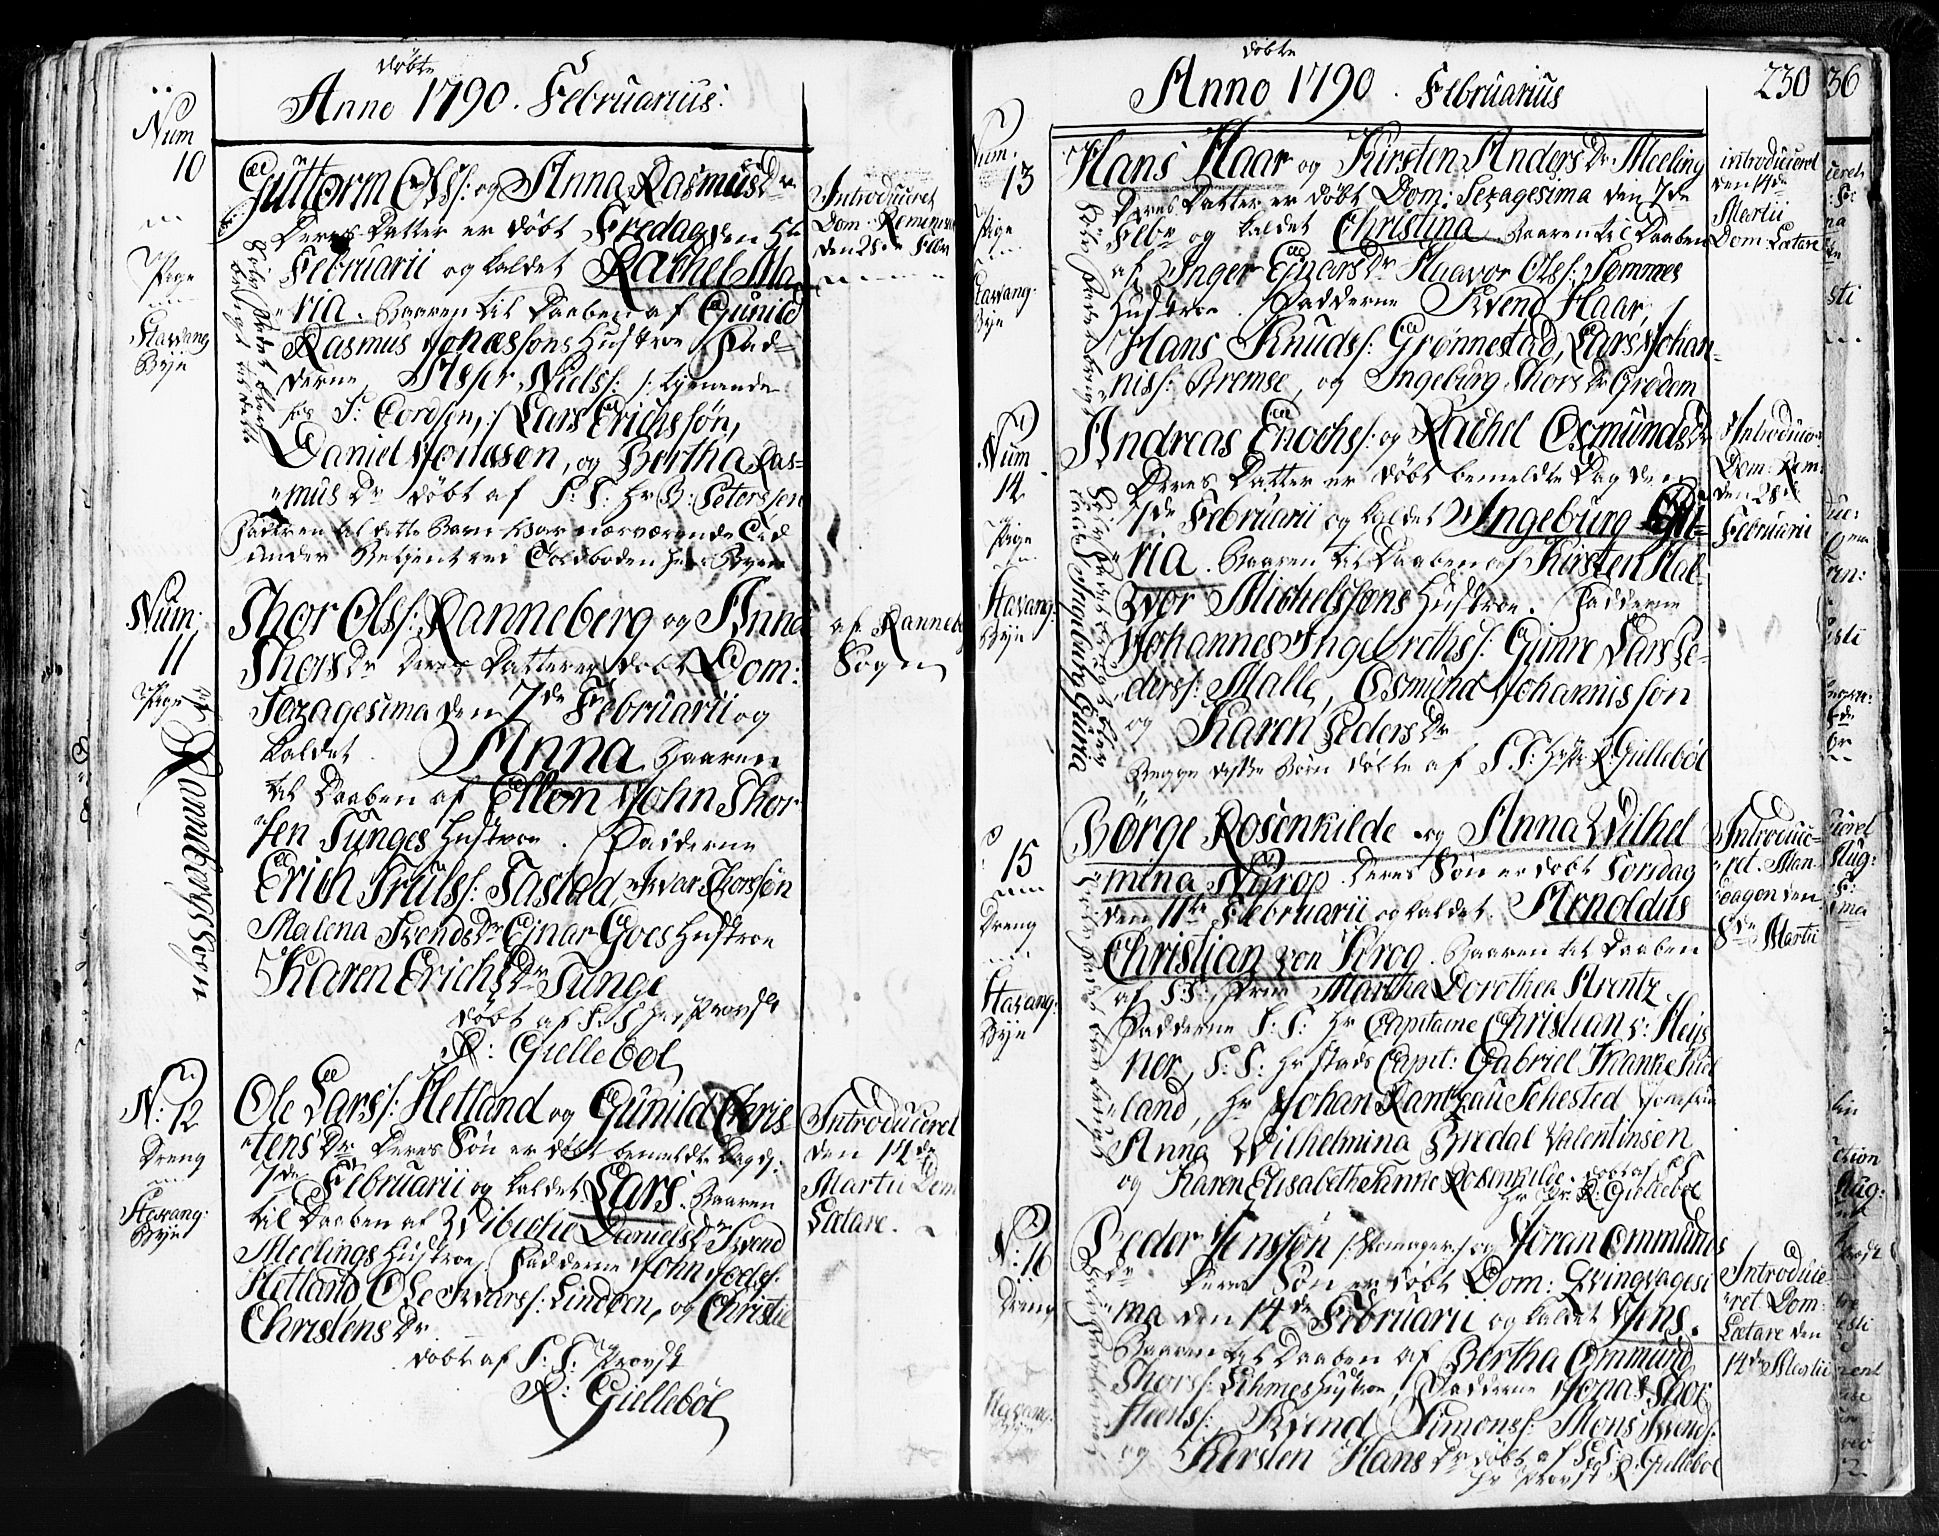 døbte
Anno 1790. Februarius:
Num
10
Guttorm Olss: og Anna Rasmus Dr
Deres Datter er døbt Fredag den 5te
Februarii og kaldet Rachel Ma-
ria. Baaren til Daaben af Gunild
Rasmus Jonæssons Hustroe Fad-
derne, Asser Nielss: /: tienende
hos Sr Cordsen, :/ Lars Erichssøn,
Daniel Jonassen, og Bertha Ras-
mus Dr døbt af S: T: Hr B: Peterssen
Faderen til dette Barn var nærværende Tid
under Betjent ved Toldboden her i Byen
Introduceret
Dom: Reminisc
den 28de Febr
Pige
Stavang
Bye
Num:
11
Pige
Ranneberg Sogn
Thor Olss: Ranneberg og Anna
Thors Dr Deres Datter er døbt Dom:
Sexagesima den 7de Februarii og
kaldet Anna Baaren
til Daaben af Ellen John Thor-
sen Tunges Hustroe. Fadderne
Erich Trulss: Tasted, Ivar Thorssøn
Malena Svends Dr Ejnar Goes Hustroe
Karen Erichs Dr Tunge
døbt af S:T Her Provst
R: Gjellebøl
af Ranneb
Sogn
N: 12
Dreng
Stavang:
Bye
Ole Larss: Hetland og Gunild Chris
tens Dr Deres Søn er døbt bemeldte Dag d:
7de Februarii og kaldet Lars. Baaren
til Daaben af Wibiche Daniels Dr Svend
Meelings Hustroe, Fadderne John Joelss:
Hetland Ole Ivarss: Linden, og Christie
Christens Dr
døbt af S: T: Provst
R: Gjellebøl
Introduceret
den 14de
Martii Dom
Lætare.
døbte
Anno 1790. Februarius
230
36
Num.
13
Pige
Stavang:
Bye
Hans Haar og Kirsten Anders Dr Meeling
Deres Datter er døbt Dom: Sexagesima den 7de
Febr og kaldet Christina Baaren til Daaben
af Inger Ejnars Dr Haavor Olss: Sømmes
Hustroe. Fadderne Svend Haar,
Hans Knudss: Grønnestad, Lars Johan-
niss: Bremse, og Ingeburg Thors Dr Grødem
introduceret
den 14de
Martii
Dom Lætare
Num
14
Pige
Stavang:
Bye
Andreas Enochs: og Rachel Osmunds Dr
Deres Datter er døbt bemeldte Dag den
7de Februarii og kaldet Ingeburg Gu-
ria. Baaren til Daaben af Kirsten Hal-
vor Michelssøns Hustroe. Fadderne
Johannes Ingebrethss: Gimre Lars Pe-
derss: Malle, Osmund Johannissøn
og Karen Peders Dr
Begge disse Børn døbte af S. T: Hr R: Gjellebøl
Introduce
Dom: Rem:
den 28de
Februarii
15
Dreng
Stavang:
Bye
Børge Rosenkilde og Anna Wilhel
mina Nyrop. Deres Søn er døbt Torsdag
den 11te Februarii og kaldet. Arnoldus
Christian von Krog. Baaren til Daaben
af S:T: Frue Martha Dorothea Arentz
Fadderne S: T: Hr Capitaine Christian v: Heys
ner, S: T: Hr Stads Capit: Gabriel Schanke Kiel
land, Hr Johan Rantzau Sehested Jomfrue
Anna Wilhelmina Bredal Valentinsen
og Karen Elisabetha Sanne Rosenkilde. døbt af S: T
Hr Pr: R: Gjellebøl
Introduce-
ret. Man-
dagen den
8de Martii
N: 16
Dreng
Stavang:
Bye
Peder Jenssøn /: Skomager :/ og Jøran Ommunds
Dr Deres Søn er døbt Dom: Qvinqvagesi
ma den 14de Februarii og kaldet Jens.
Baaren til Daaben af Bertha Ommund
Thorss: Lihmes Hustroe, Fadderne Jonas Thor
Svend Simonss: Mons Svends:
og Kirsten Hans Dr døbt af S: T:
Hr Provst R: Gjellebøl
Introduce
ret Dom:
Lætare den
14de Martii